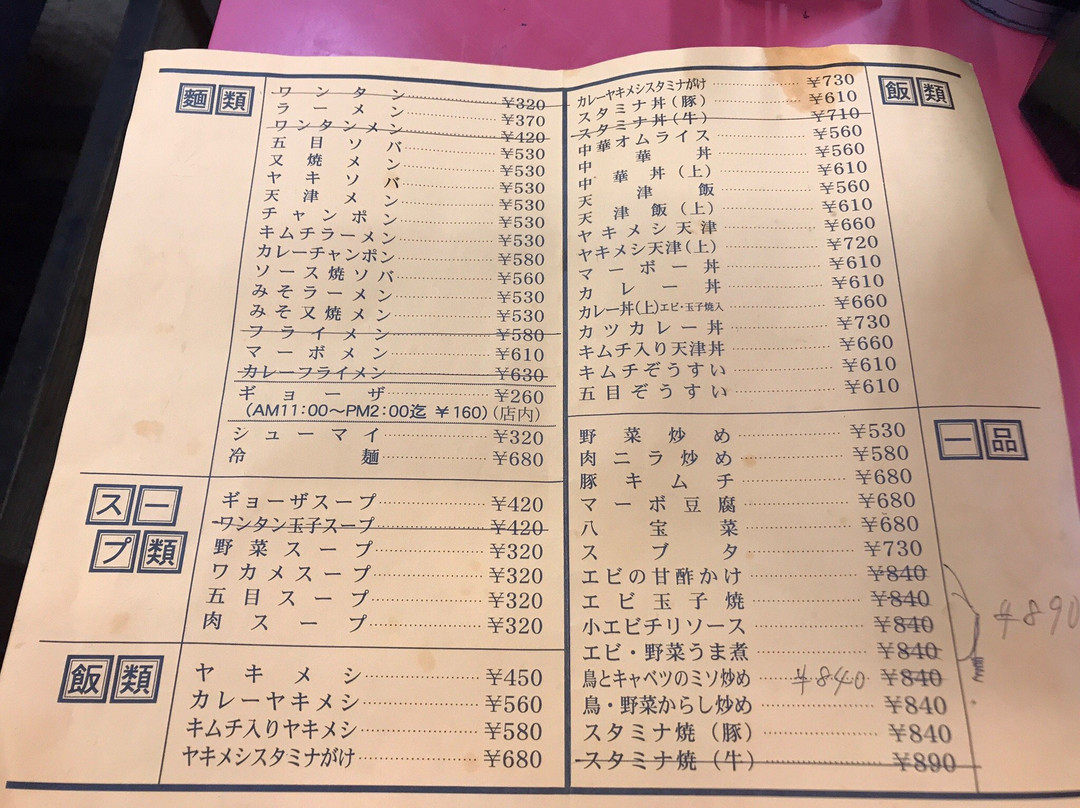 麵類
ワンタン ¥320
ラーメン ¥370
ワンタンメン ¥420
五目ソバ ¥530
又焼メン ¥530
ヤキソバ ¥530
天津メン ¥530
チャンポン ¥530
キムチラーメン ¥530
カレーチャンポン ¥580
ソース焼ソバ ¥560
みそラーメン ¥530
みそ又焼メン ¥530
フライメン ¥580
マーボメン ¥610
カレーフライメン ¥630
ギョーザ ¥260
(AM11:00〜PM2:00迄 ¥160)(店内)
シューマイ ¥320
冷麺 ¥680
スープ類
ギョーザスープ ¥420
ワンタン玉子スープ ¥420
野菜スープ ¥320
ワカメスープ ¥320
五目スープ ¥320
肉スープ ¥320
飯類
ヤキメシ ¥450
カレーヤキメシ ¥560
キムチ入りヤキメシ ¥580
ヤキメシスタミナがけ ¥680
飯類
カレーヤキメシスタミナがけ ¥730
スタミナ丼(豚) ¥610
スタミナ丼(牛) ¥710
中華オムライス ¥560
中華丼 ¥560
中華丼(上) ¥610
天津飯 ¥560
天津飯(上) ¥610
ヤキメシ天津 ¥660
ヤキメシ天津(上) ¥720
マーボー丼 ¥610
カレー丼 ¥610
カレー丼(上)エビ・玉子焼入 ¥660
カツカレー丼 ¥730
キムチ入り天津丼 ¥660
キムチぞうすい ¥610
五目ぞうすい ¥610
一品
野菜炒め ¥530
肉ニラ炒め ¥580
豚キムチ ¥680
マーボ豆腐 ¥680
八宝菜 ¥680
スブタ ¥730
エビの甘酢かけ ¥840
エビ玉子焼 ¥840
小エビチリソース ¥840 ¥890
エビ・野菜うま煮 ¥840
鳥とキャベツのミソ炒め ¥840 ¥840
鳥・野菜からし炒め ¥840
スタミナ焼(豚) ¥840
スタミナ焼(牛) ¥890